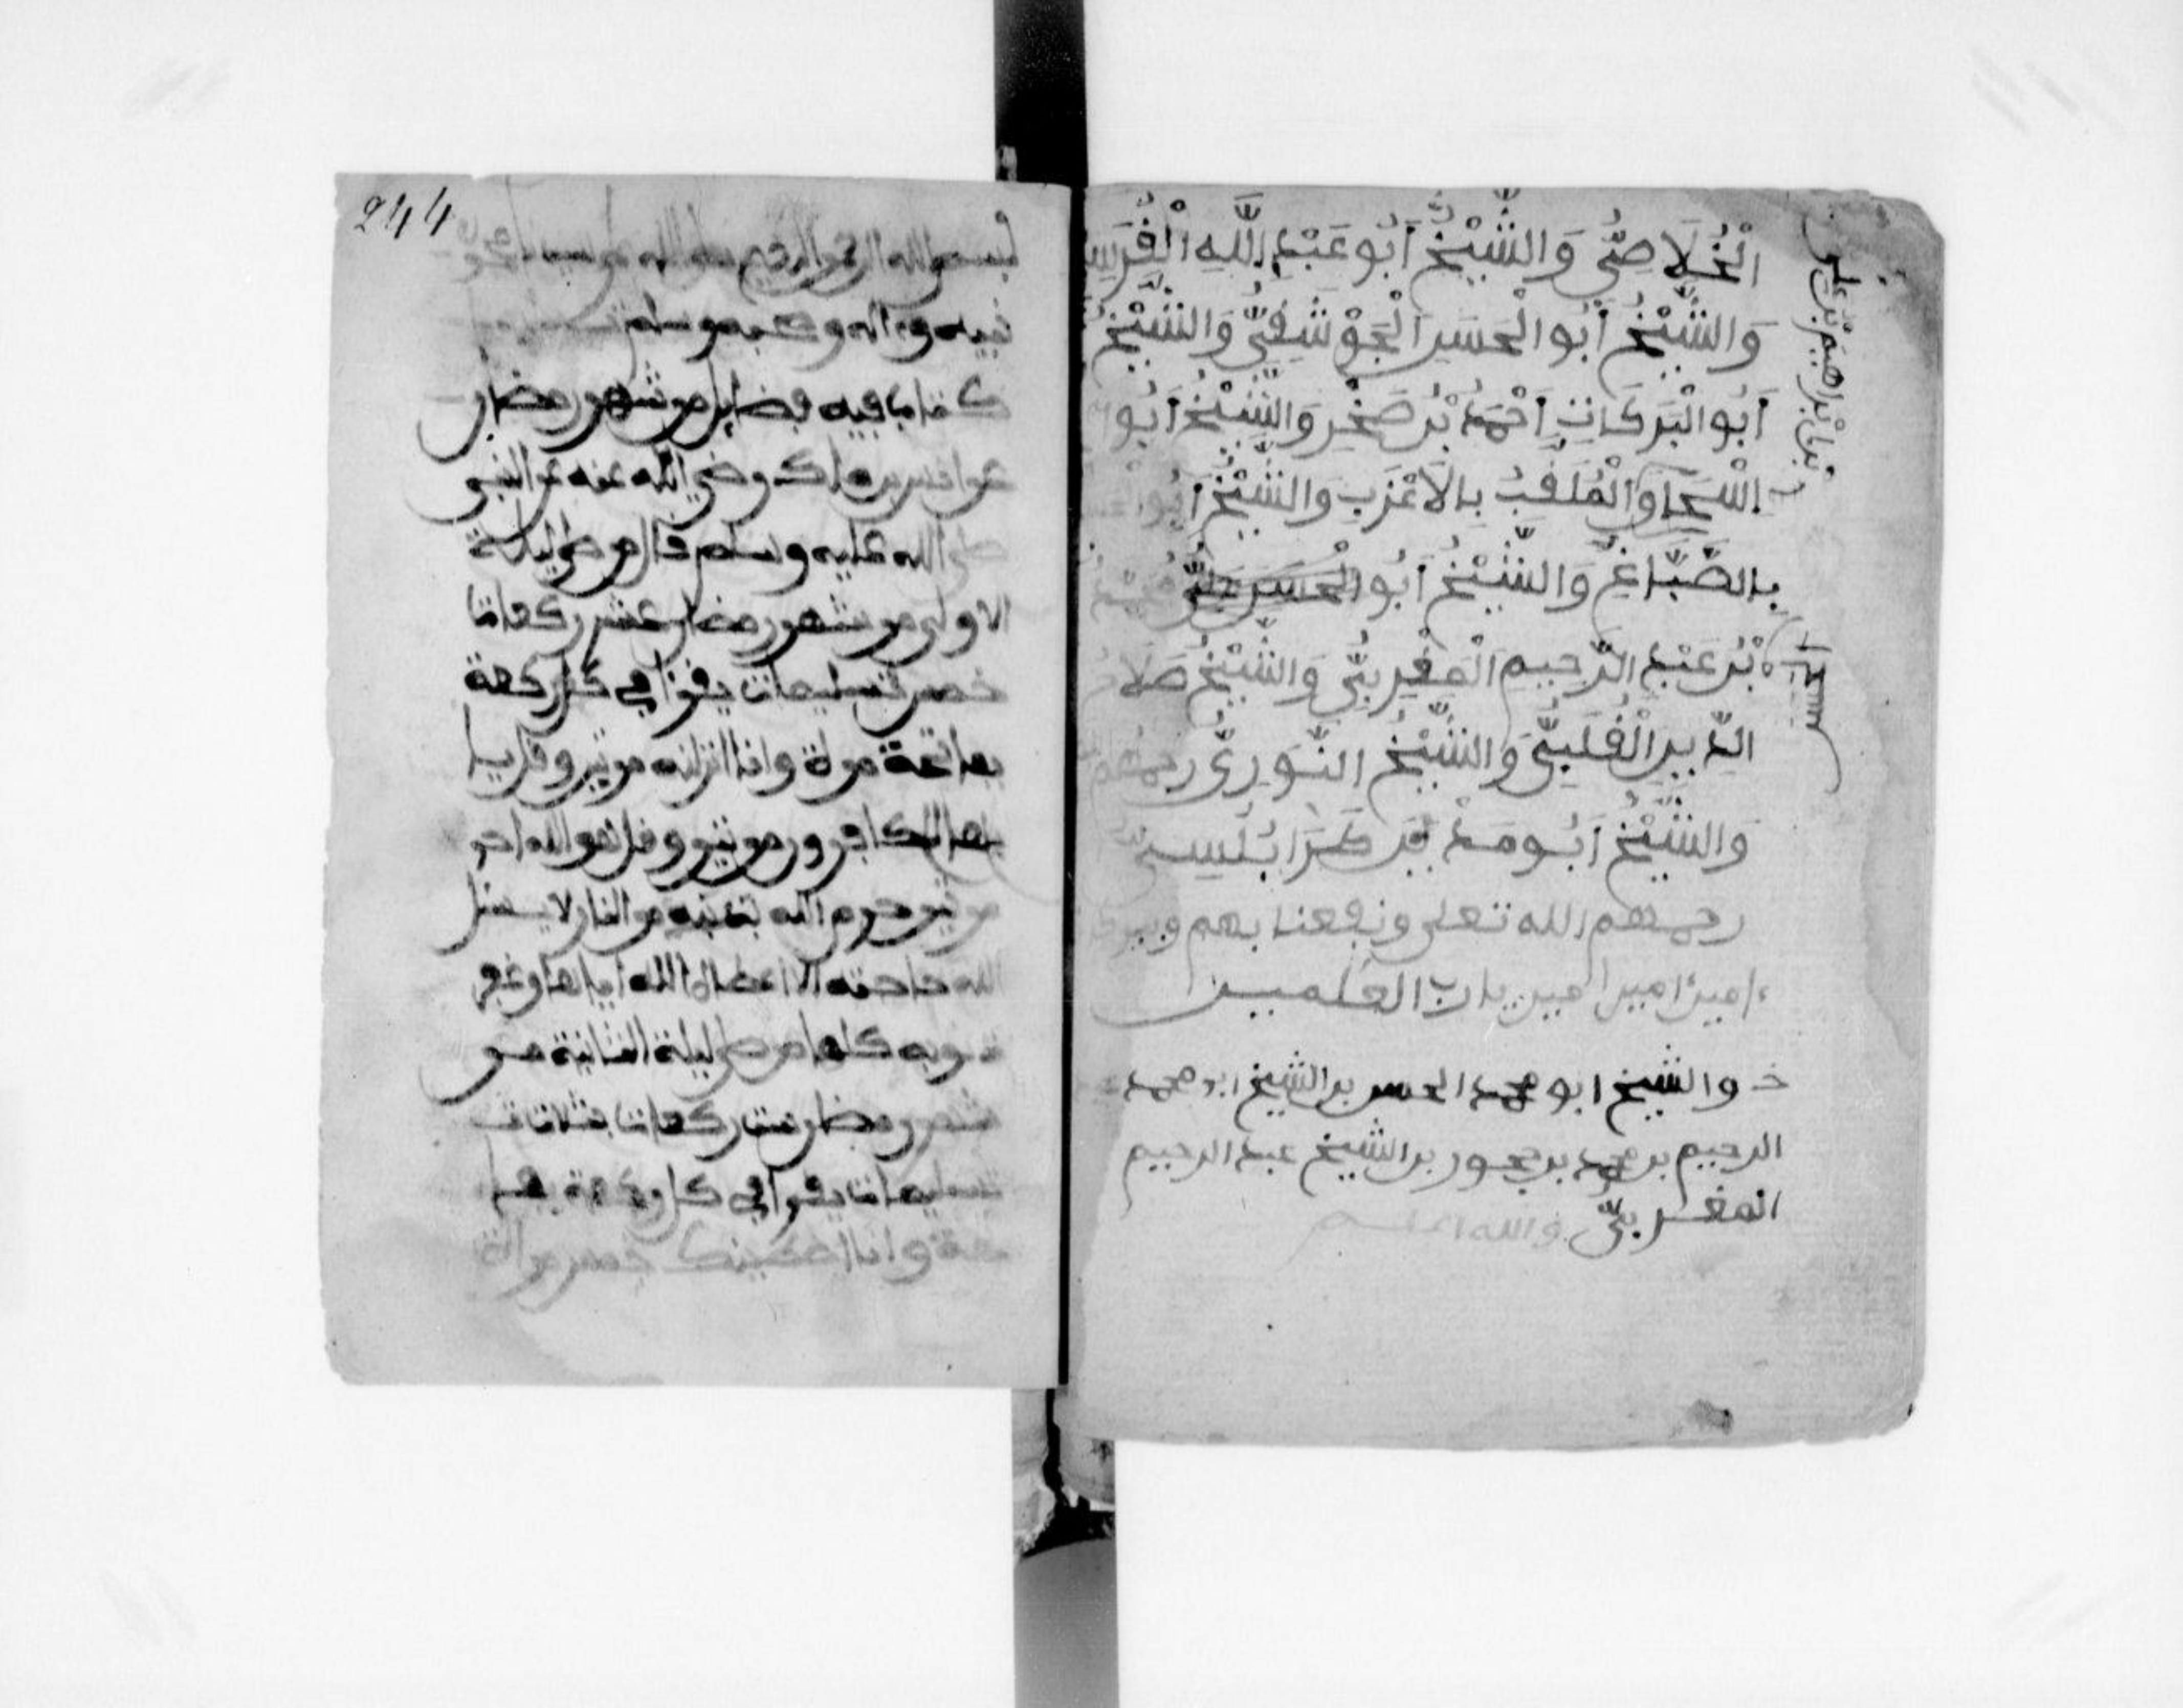 الْخُلَاصِيُّ وَالشَّيْخُ أَبُو عَبْدِ اللَّهِ الْقُرَشِي
وَالشَّيْخُ أَبُو الْحَسَنِ الْجَوْشَقِيُّ وَالشَّيْخُ
أَبُو الْبَرَكَاتِ أَحْمَدُ بْنُ صَخْرٍ وَالشَّيْخُ أَبُو
وَالْمُلَقَّبُ بِالْأَعْزَبِ وَالشَّيْخُ أَبُو
بِالصَّبَّاغِ وَالشَّيْخُ أَبُو الْحَسَنِ
بْنُ عَبْدِ الرَّحِيمِ الْمَغْرِبِيُّ وَالشَّيْخُ صَلَاحُ
الدِّينِ الْقُلَيْبِيُّ وَالشَّيْخُ النَّوَرِيُّ
وَالشَّيْخُ أَبُو مَدْيَنَ
رحمهم الله تعلى ونفعنا بهم
ءامين امين امين يارب العلمين
خ والشيخ ابو محمد الحسن بن الشيخ
الرحيم بن محمد بن بن الشيخ عبد الرحيم
المغربيُّ والله اعلم
بن ابراهيم بن علي
244
بسم الله الرحمن الرحيم صلى الله على سيدنا محمد
نبيه وءاله وصحبه وسلم
كتاب فيه فضايل من شهر رمضان
عن انس بن ملك رضي الله عنه عن النبي
صلى الله عليه وسلم قال من صلى ليلة
الاولى من شهر رمضان عشر ركعات
خمس تسليمات يقرا في كل ركعة
بفاتحة مرة وانا انزلنه مرتين وقل يا
ايها الكافرون مرتين وقل هو الله احد
مرتين حرم الله من النار لا يسئل
الله حاجته الا اعطاه الله اياها وغفر
ذنوبه كلها من صلى ليلة الثانية من
شهر رمضان ست ركعات بثلاث
تسليمات يقرا في كل ركعة بفا
تحة وانا اعطينك خمس مرات